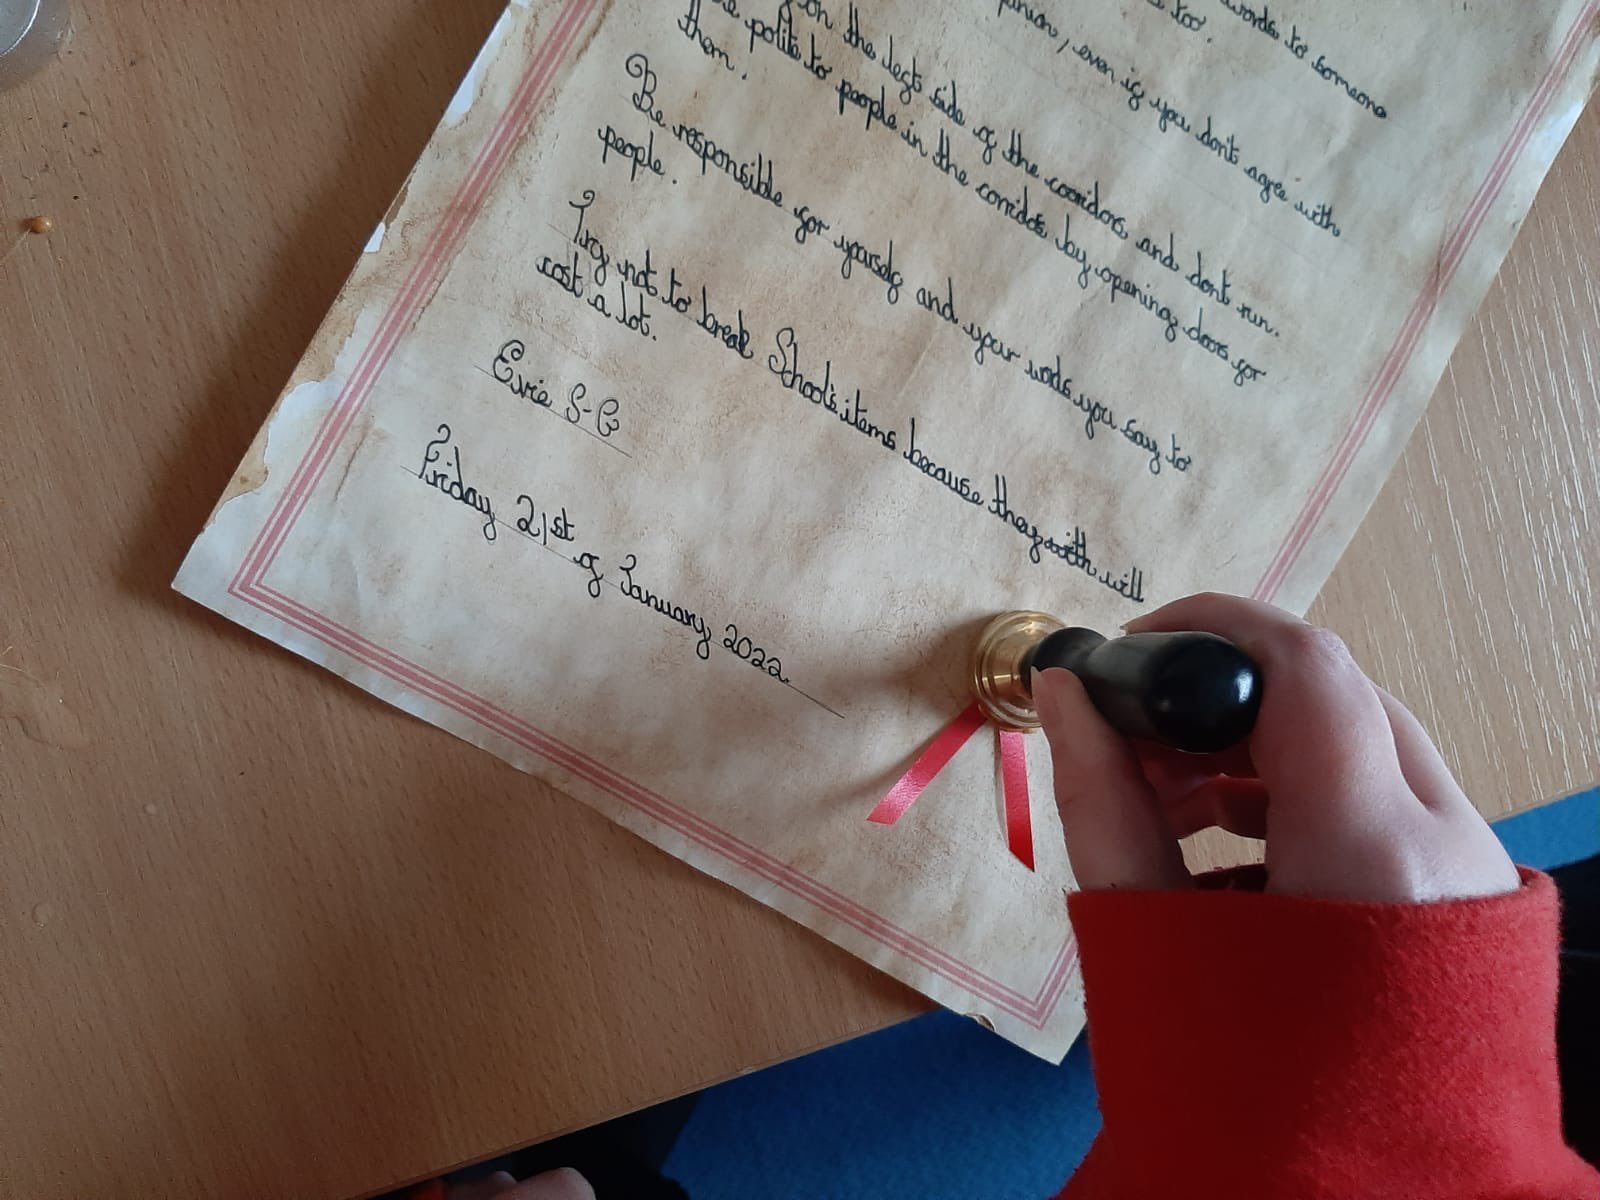 words to someone
too.
even if you dont agree with
on the left side of the cooridors and dont run.
polite to people in the corridos by opening doors for
them.
Be responsible for yourself and your words you say to
people.
Try not to break School's items because they with will
cost a lot.
Evie S-G
Friday 21st of January 2022